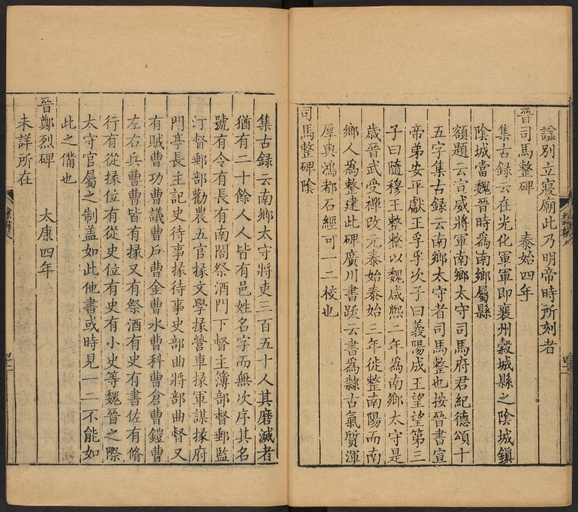 諡別立寢廟此乃明帝時所刻者
晉司馬整碑 泰始四年
集古録云在光化軍軍即襄州糓城縣之陰城鎮
陰城當魏晉時為南鄉屬縣
額題云宣威將軍南鄉太守司馬府君紀德頌十
五字集古録云南鄉太守者司馬整也按晉書宣
帝弟安平獻王孚孚次子曰義陽成王望望第三
子曰隨穆王整整以魏咸熙二年為南鄉太守是
歳晉武受禪改元泰始泰始三年徙整南陽而南
鄉人為整建此碑廣川書跋云書為隸古氣質渾
厚與鴻都石經可一二校也
司馬整碑陰
集古録云南鄉太守將吏三百五十人其磨滅者
猶有二十餘人人皆有邑姓名字而無次序其名
號有令有長有南閤祭酒門下督主簿部督郵監
汀督郵部勸農五官掾文學掾營車掾軍謀掾府
門亭長主記史待事掾待事史部曲將部曲督又
有賊曹功曹議曹戶曹金曹水曹科曹倉曹鎧曹
左右兵曹曹皆有掾又有祭酒有史有書佐有脩
行有從掾位有從史位有史有小史等魏晉之際
太守官屬之制盖如此他書或時見一二不能如
此之備也
晉鄭烈碑 太康四年
未詳所在